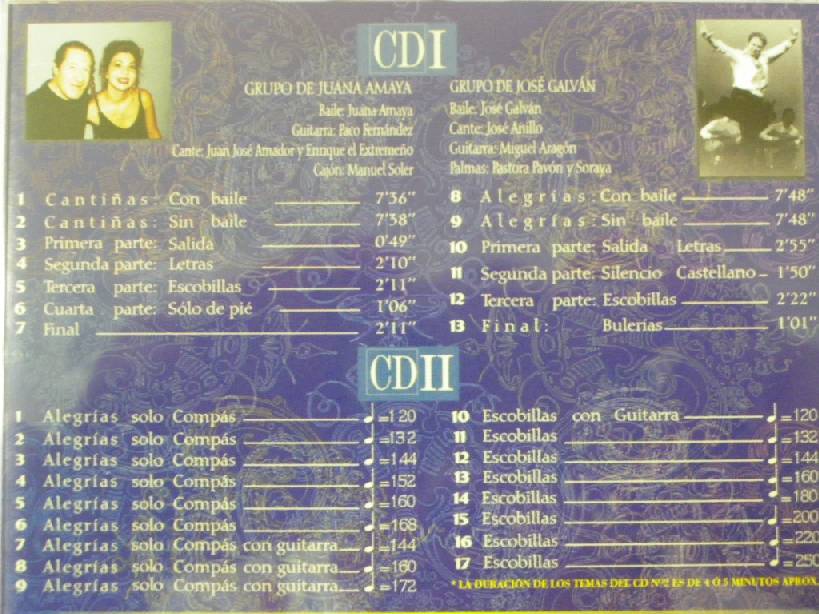 CD I
GRUPO DE JUANA AMAYA
Baile: Juana Amaya
Guitarra: Paco Fernández
Cante: Juan José Amador y Enrique el Extremeño
Cajón: Manuel Soler
1 Cantiñas: Con baile 7'36"
2 Cantiñas: Sin baile 7'38"
3 Primera parte: Salida 0'49"
4 Segunda parte: Letras 2'10"
5 Tercera parte: Escobillas 2'11"
6 Cuarta parte: Sólo de pié 1'06"
7 Final 2'11"
GRUPO DE JOSÉ GALVÁN
Baile: José Galván
Cante: José Anillo
Guitarra: Miguel Aragón
Palmas: Pastora Pavón y Soraya
8 Alegrías: Con baile 7'48"
9 Alegrías: Sin baile 7'48"
10 Primera parte: Salida Letras 2'55"
11 Segunda parte: Silencio Castellano 1'50"
12 Tercera parte: Escobillas 2'22"
13 Final: Bulerias 1'01"
CD II
1 Alegrías solo Compás ♩=120
2 Alegrías solo Compás ♩=132
3 Alegrías solo Compás ♩=144
4 Alegrías solo Compás ♩=152
5 Alegrías solo Compás ♩=160
6 Alegrías solo Compás ♩=168
7 Alegrías solo Compás con guitarra ♩=144
8 Alegrías solo Compás con guitarra ♩=160
9 Alegrías solo Compás con guitarra ♩=172
10 Escobillas con Guitarra ♩=120
11 Escobillas ♩=132
12 Escobillas ♩=144
13 Escobillas ♩=160
14 Escobillas ♩=180
15 Escobillas ♩=200
16 Escobillas ♩=220
17 Escobillas ♩=250
* LA DURACIÓN DE LOS TEMAS DEL CD Nº2 ES DE 4 Ó 5 MINUTOS APROX.